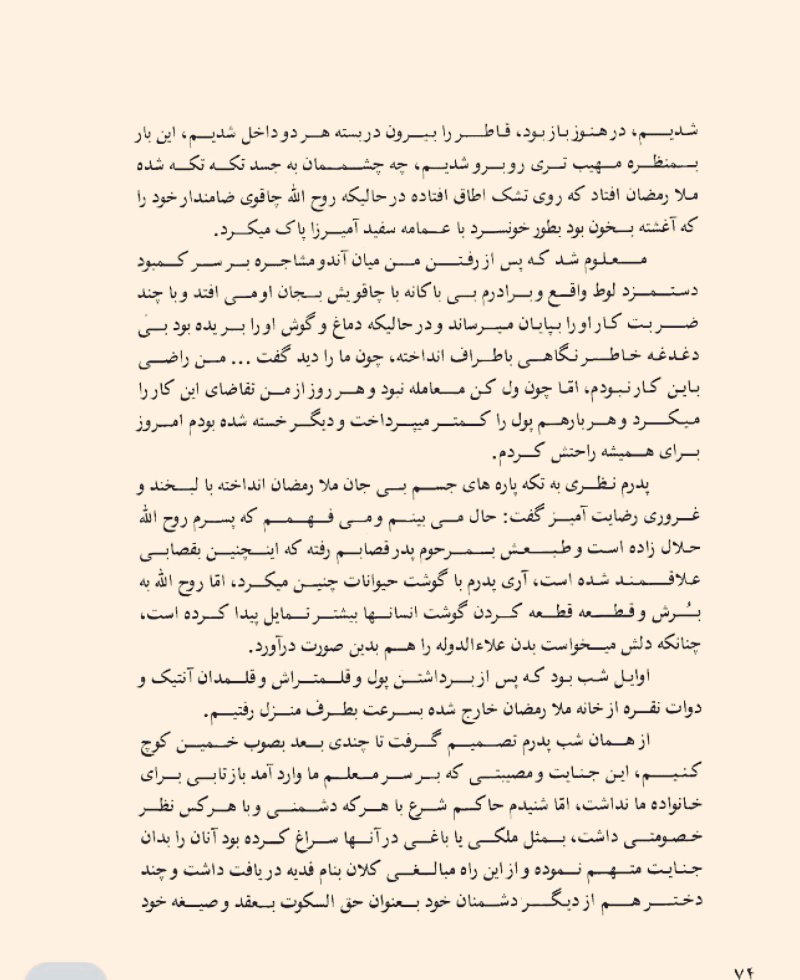 شدیم، در هنوز باز بود، قاطر را بیرون در بسته هر دو داخل شدیم، این بار
بمنظره مهیب تری روبرو شدیم، چه چشممان به جسد تکه تکه شده
ملا رمضان افتاد که روی تشک اطاق افتاده در حالیکه روح الله چاقوی ضامندار خود را
که آغشته بخون بود بطور خونسرد با عمامه سفید آمیرزا پاک میکرد.
معلوم شد که پس از رفتن من میان آندو مشاجره بر سر کمبود
دستمزد لوط واقع و برادرم بی باکانه با چاقویش بجان او می افتد و با چند
ضربت کار او را بپایان میرساند و در حالیکه دماغ و گوش او را بریده بود بی
دغدغه خاطر نگاهی باطراف انداخته، چون ما را دید گفت ... من راضی
باین کار نبودم، امّا چون ول کن معامله نبود و هر روز از من تقاضای این کار را
میکرد و هر بار هم پول را کمتر میپرداخت و دیگر خسته شده بودم امروز
برای همیشه راحتش کردم.
پدرم نظری به تکه پاره های جسم بی جان ملا رمضان انداخته با لبخند و
غروری رضایت آمیز گفت: حال می بینم و می فهمم که پسرم روح الله
حلال زاده است و طبعش بمرحوم پدر قصابم رفته که اینچنین بقصابی
علاقمند شده است، آری پدرم با گوشت حیوانات چنین میکرد، امّا روح الله به
بُرش و قطعه قطعه کردن گوشت انسانها بیشتر تمایل پیدا کرده است،
چنانکه دلش میخواست بدن علاءالدوله را هم بدین صورت درآورد.
اوایل شب بود که پس از برداشتن پول و قلمتراش و قلمدان آنتیک و
دوات نقره از خانه ملا رمضان خارج شده بسرعت بطرف منزل رفتیم.
از همان شب پدرم تصمیم گرفت تا چندی بعد بصوب خمین کوچ
کنیم، این جنایت و مصیبتی که بر سر معلم ما وارد آمد بازتابی برای
خانواده ما نداشت، امّا شنیدم حاکم شرع با هرکه دشمنی و با هرکس نظر
خصومتی داشت، بمثل ملکی یا باغی در آنها سراغ کرده بود آنان را بدان
جنایت متهم نموده و از این راه مبالغی کلان بنام فدیه دریافت داشت و چند
دختر هم از دیگر دشمنان خود بعنوان حق السکوت بعقد و صیغه خود
۷۴